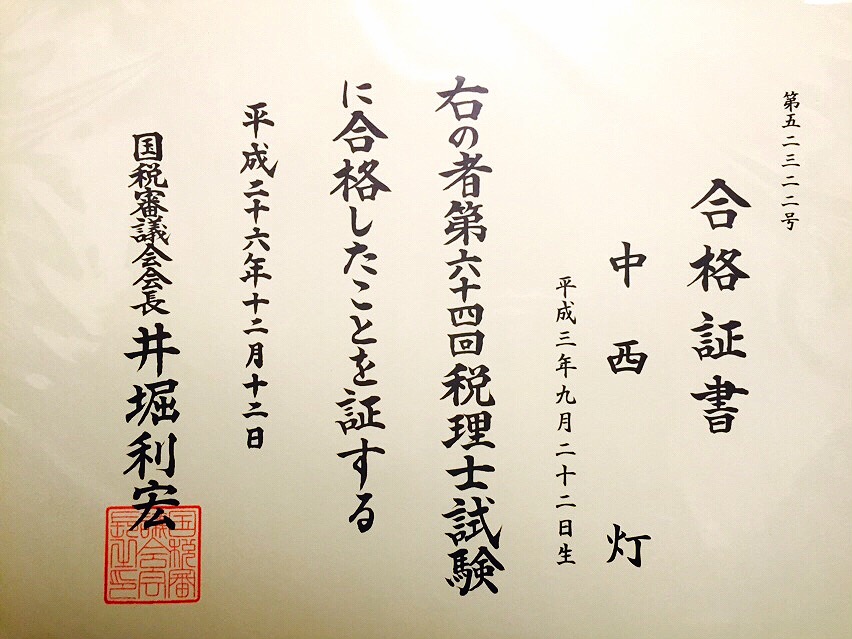 第五二三二二号
合格証書
中西灯
平成三年九月二十二日生
右の者第六十四回税理士試験
に合格したことを証する
平成二十六年十二月十二日
国税審議会会長 井堀利宏
国税審議会会長之印